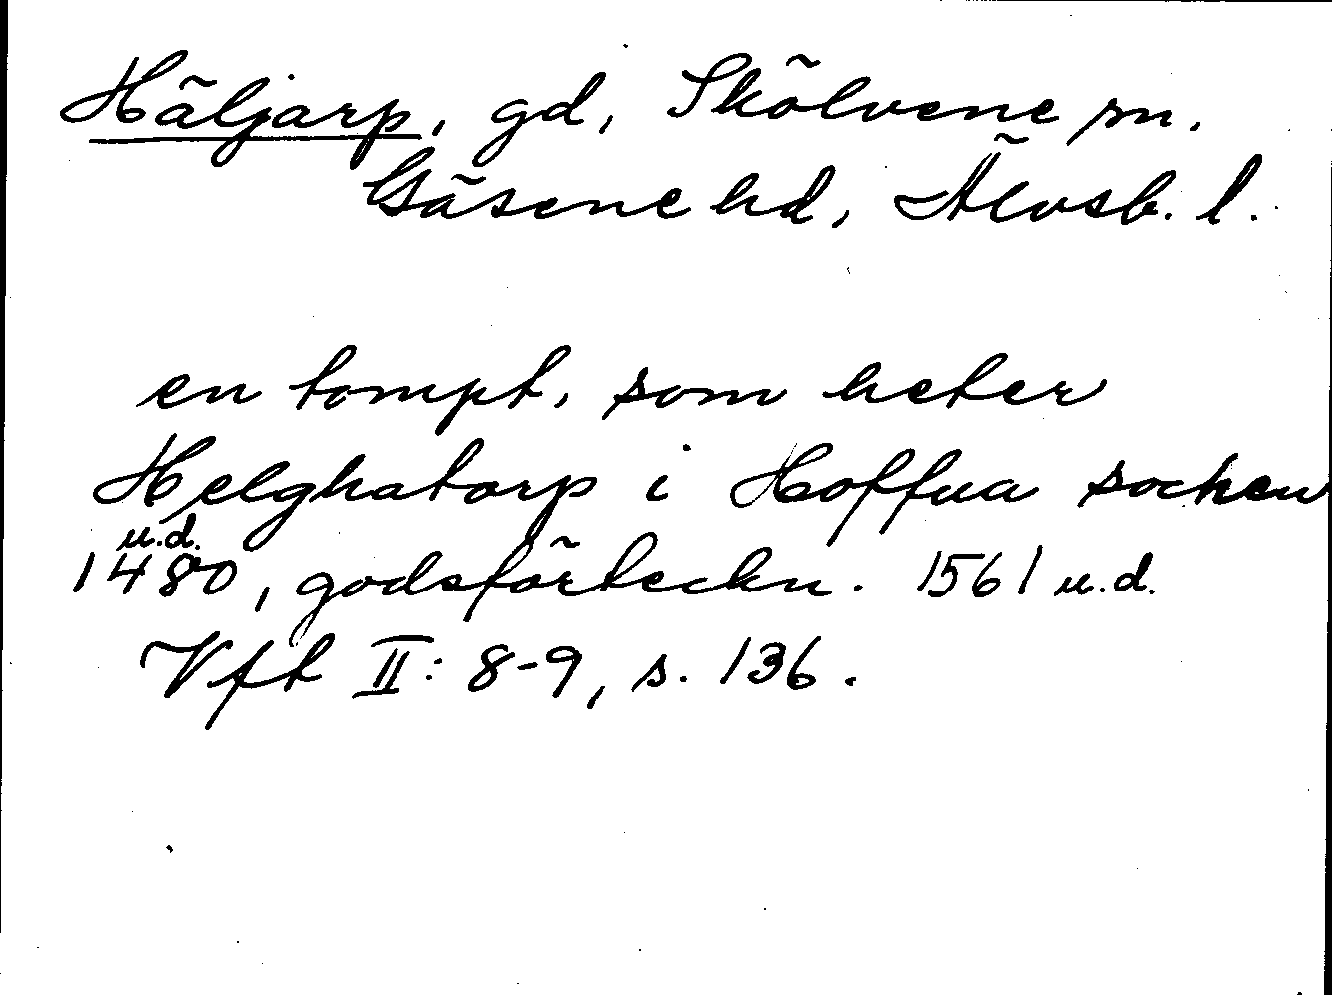 Häljarp, gd, Skölvene sn.
Gäsene hd, Älvsb. l.
en tompt, som heter
Helghatorp i Hoffua socken
u.d.
1480, godsförteckn. 1561 u.d.
Vft II: 8-9, s. 136.